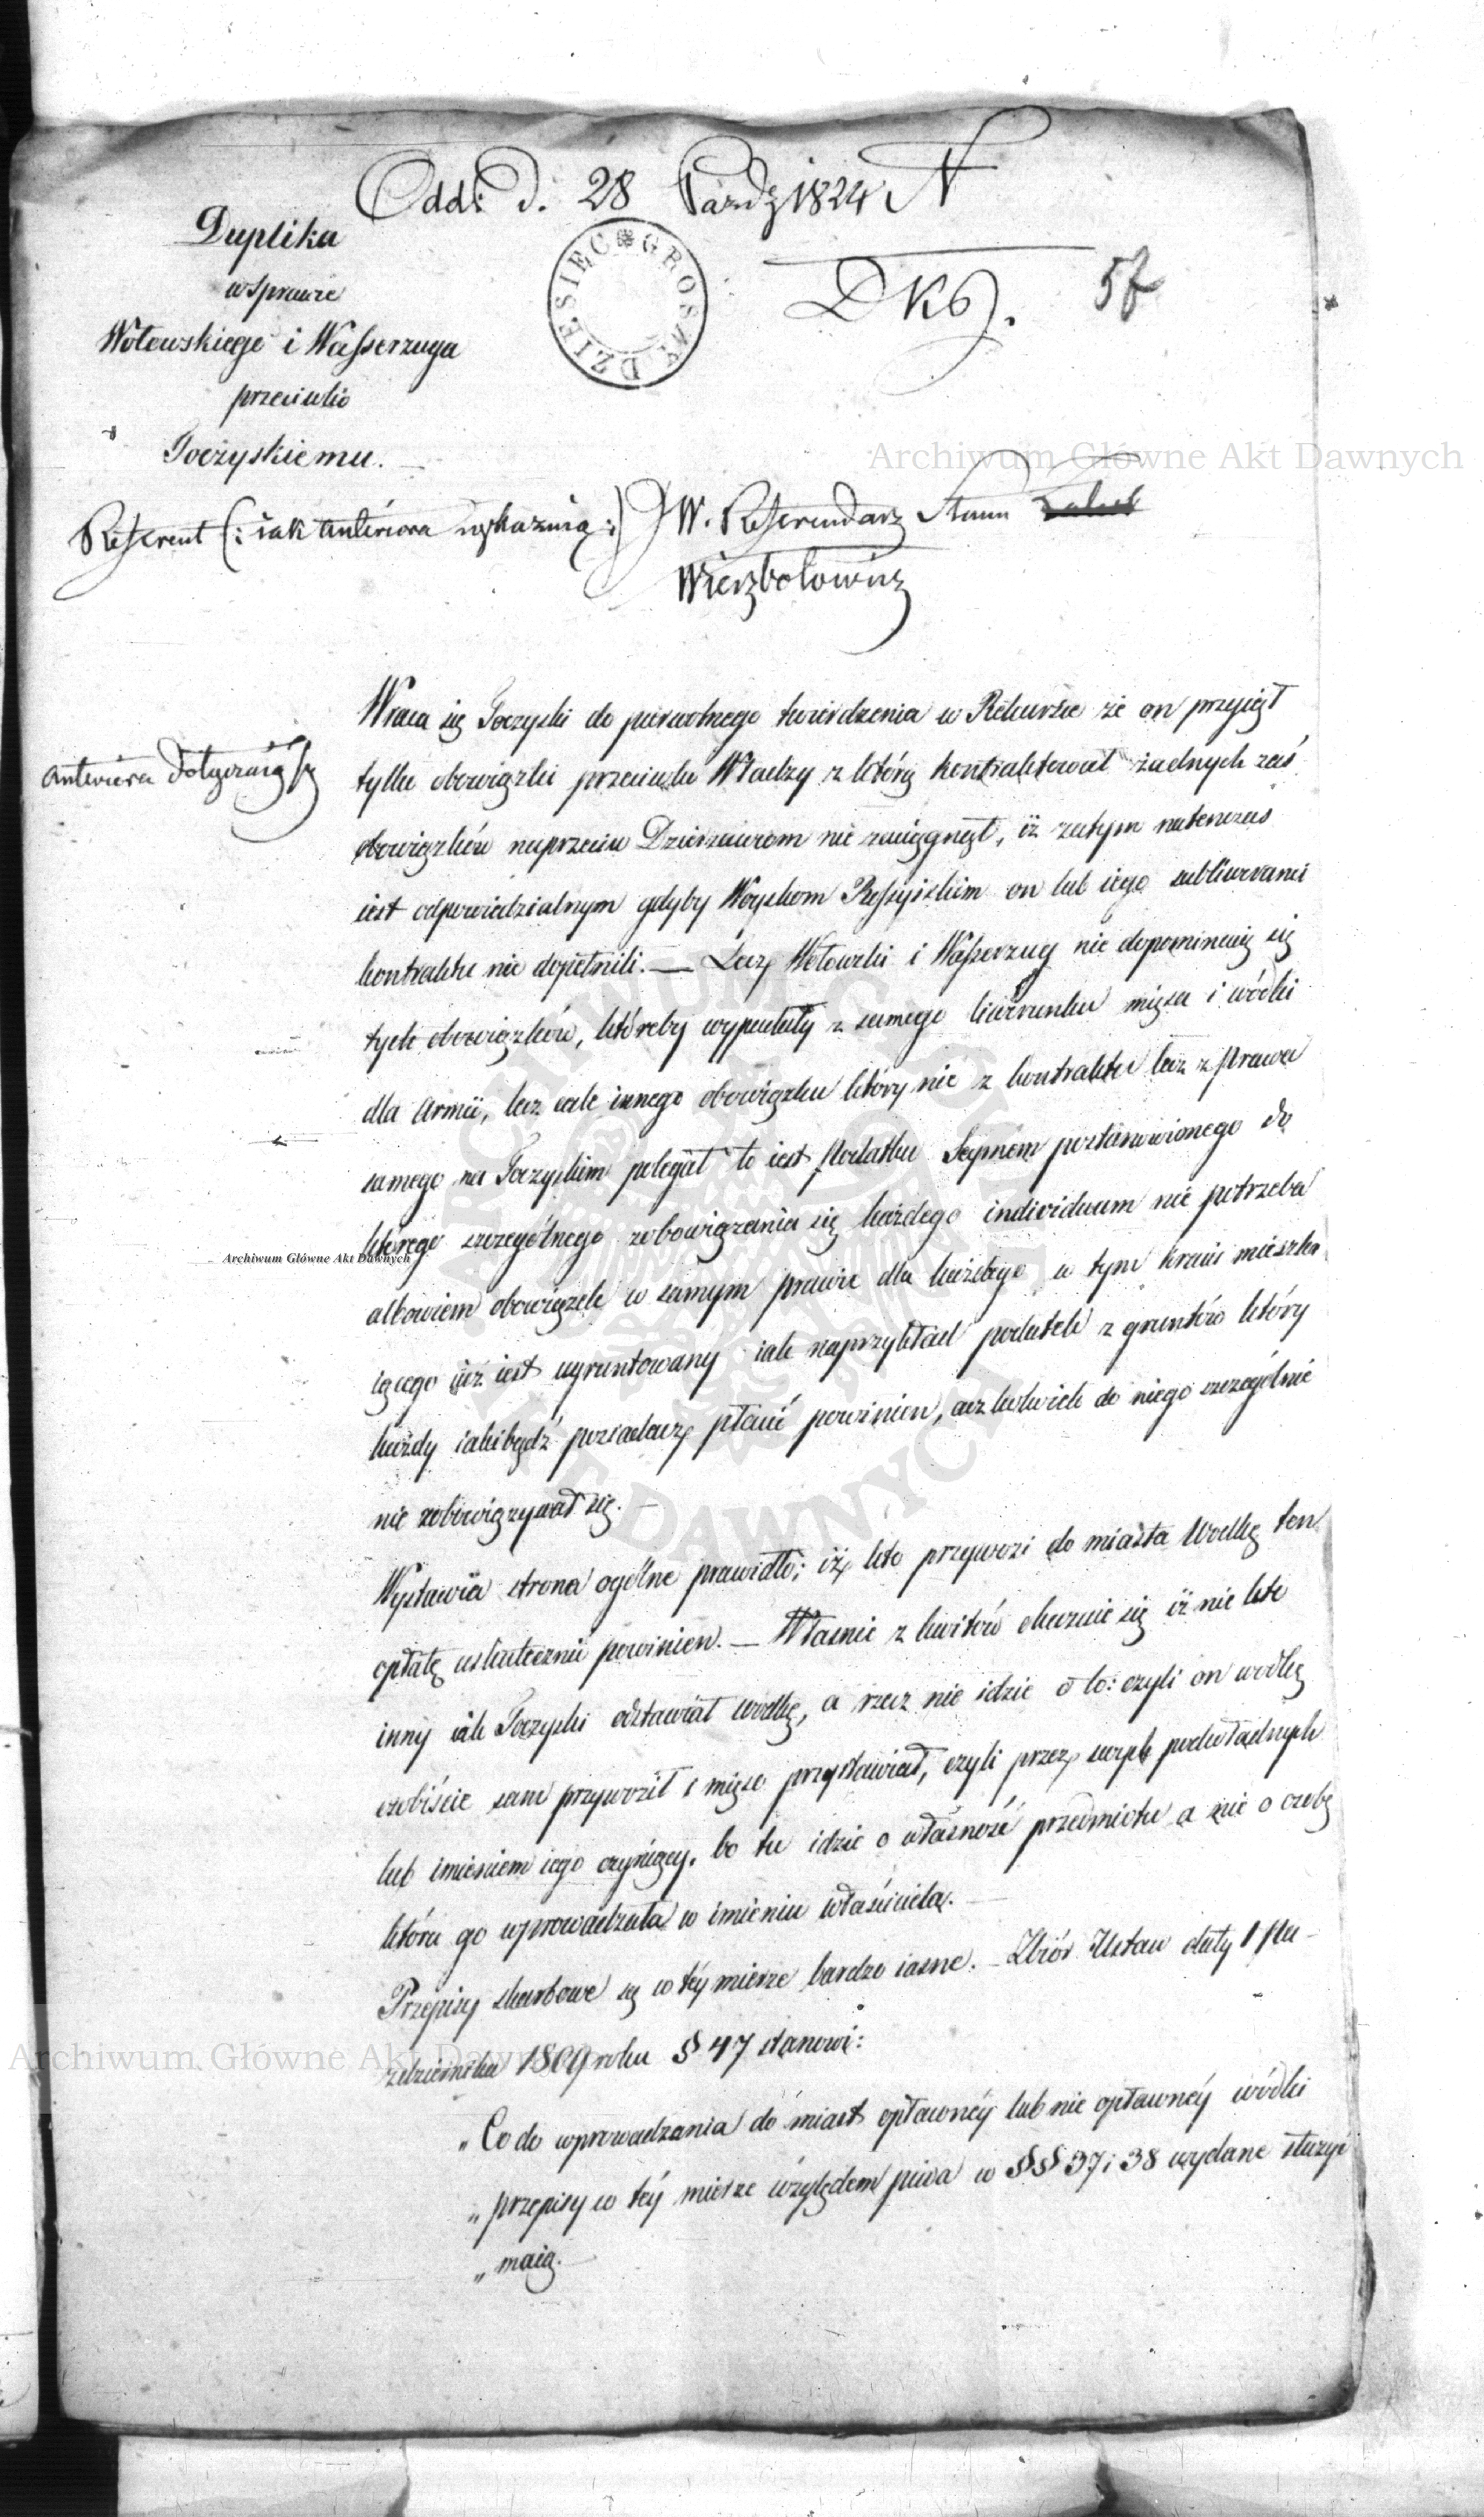 Odd: d. 28 Paźdz 1824 N
Duplika
w sprawie
Wołowskiego i Wasserzuga
przeciwko
Toczyskiemu.
DZIESIĘĆ GROSZY
DKS. 57
Referent (: iak anteriora wskazuią :) JW. Referendarz Stanu
Wierzbołowicz
anteriora dotyczaią
Wraca się Toczyski do pierwotnego twierdzenia w Rekursie że on przyiął
tylko obowiązki przeciwko Władzy z którą kontraktował żadnych zaś
obowiązków naprzeciw Dzierżawcom nie zaciągnął, iż zatym natenczas
iest odpowiedzialnym gdyby Woyskom Rossyiskim on lub iego subliweranci
kontraktu nie dopełnili. — Lecz Wołowski i Wasserzug nie dopominaią się
tych obowiązków, któreby wypadały z samego liwerunku mięsa i wódki
dla Armii, lecz cale innego obowiązku który nie z kontraktu lecz z prawa
samego na Toczyskim polegał to iest podatku Seymem postanowionego do
którego szczególnego zobowiązania się każdego individuum nie potrzeba
albowiem obowiązek w samym prawie dla każdego w tym kraiu mieszka
iącego iuż iest ugruntowany iak naprzykład podatek z gruntów który
każdy iakibądź posiadacz płacić powinien, aczkolwiek do niego szczególnie
nie zobowiązywał się. —
Wystawia strona ogólne prawidło; iż kto przywozi do miasta Wodkę ten
opłatę uskutecznić powinien. — Własnie z kwitów okazuie się iż nie kto
inny iak Toczyski odstawiał wodkę, a rzecz nie idzie o to: czyli on wodkę
osobiście sam przywoził i mięso przystawiał, czyli przez swych podwładnych
lub imieniem iego czyniący, bo tu idzie o własność przedmiotu a nie o osobę
która go wprowadzała w imieniu właściciela. —
Przepisy skarbowe są w téy mierze bardzo iasne. — Zbiór Ustaw daty 1 Pa-
zdziernika 1809 roku § 47 stanowi:
„Co do wprowadzania do miast opławnéy lub nie opławnéy wódki
„przepisy w téy mierze względem piwa w §§ 37 i 38 wydane służyć
„maią. —
Archiwum Główne Akt Dawnych
Archiwum Główne Akt Dawnych
Archiwum Główne Akt Dawnych
ARCHIWUM GŁÓWNE AKT DAWNYCH